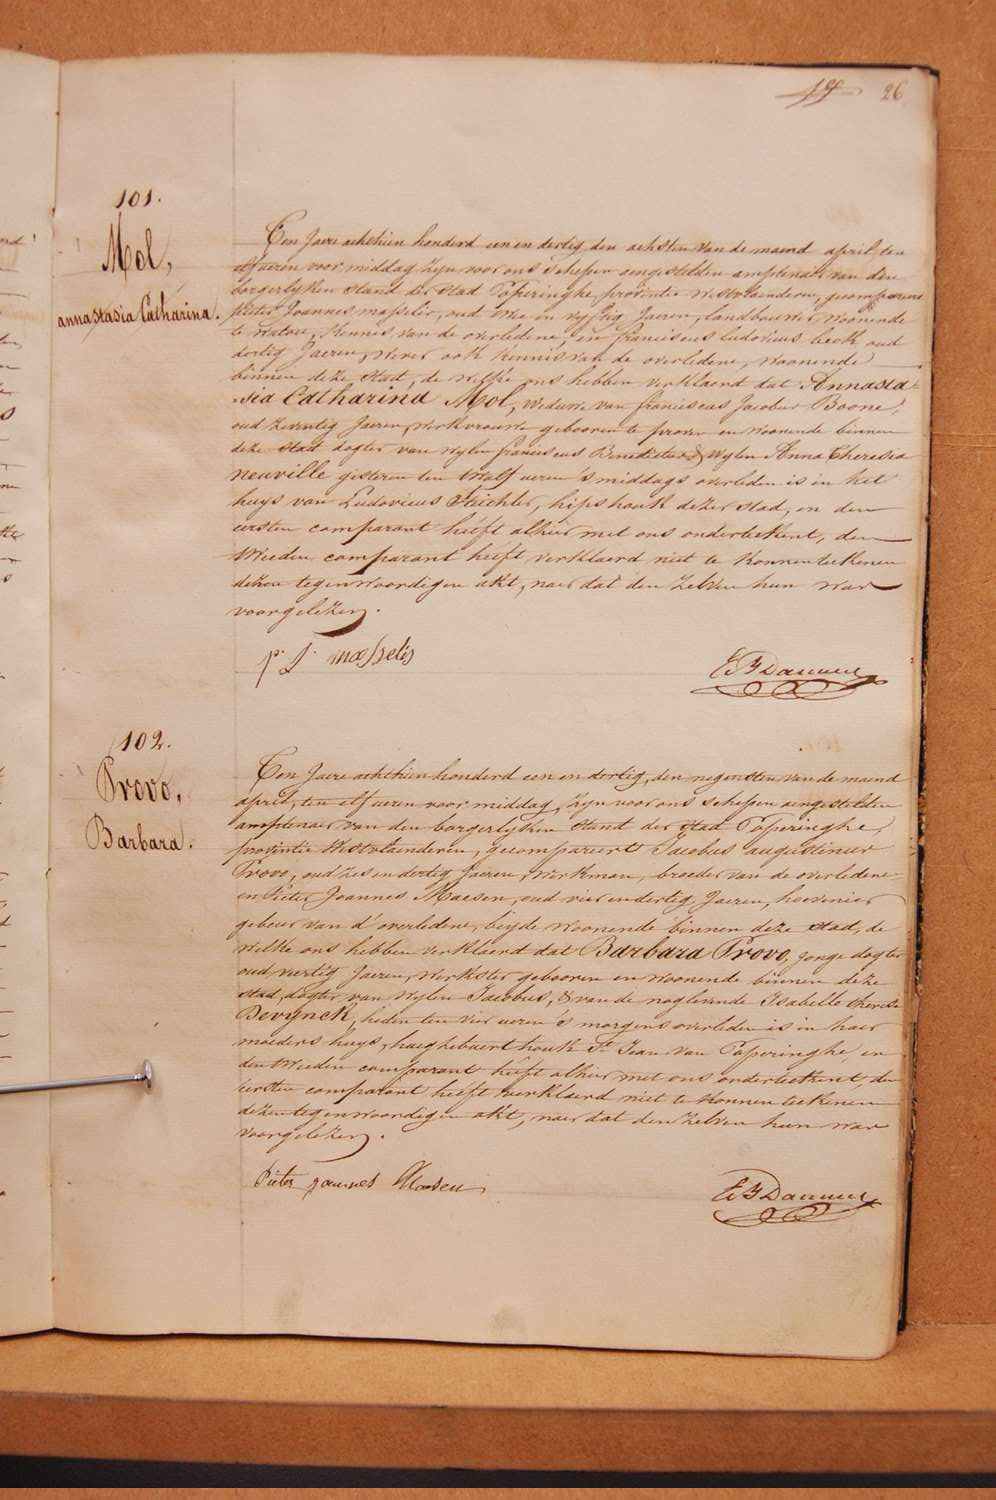 26
101.
Mol,
annastasia Catharina.
Ten Jaere achthien honderd een en dertig den achsten van de maend april, ten
elf ueren voor middag zyn voor ons schepen aengestelden amptenaer van den
borgerlyken stand der stad Poperinghe, provintie westvlaenderen, gecompareert
pieter Joannes masselis, oud twee en vyftig Jaeren, landbouwer woonende
te watou, kennis van de overledene, en franciscus ludovicus beck oud
dertig Jaeren, wever ook kennis van de overledene, woonende
binnen deze stad, de welke ons hebben verklaerd dat Annasta=
sia Catharina Mol, weduwe van franciscus Jacobus Boone,
oud zeventig Jaeren, werkvrouwe gebooren te proven en woonende binnen
deze stad dogter van wylen franciscus Benedictus & wylen Anna Theresia
neuville gisteren ten twalf ueren 's middags overleden is in het
huys van Ludovicus Stichter, hipshoek dezer stad, en den
eersten comparant heeft alhier met ons onderteekent, den
tweeden comparant heeft verklaerd niet te konnen teekenen
dezen tegenwoordigen akt, naer dat den zelven hun was
voorgelezen.
p. J. masselis
102.
Provo,
Barbara.
Ten Jaere achthien honderd een en dertig, den negensten van de maend
april, ten elf ueren voor middag, zyn voor ons schepen aengestelden
amptenaer van den borgerlyken stand der stad Poperinghe,
provintie westvlaenderen, gecompareert Jacobus augustinus
Provo, oud zes en dertig Jaeren, werkman, broeder van de overledene
en Pieter Joannes Maesen, oud vier en dertig Jaeren, hovenier
gebeur van d'overledene, beyde woonende binnen deze stad, de
welke ons hebben verklaerd dat Barbara Provo, jonge dogter
oud veertig Jaeren, werkster gebooren en woonende binnen deze
stad, dogter van wylen Jacobus, & van de naglevende Isabelle therese
Devynck, heden ten vier ueren 's morgens overleden is in haer
moeders huys, haeghebaert houk St Jean van Poperinghe en
den tweeden comparant heeft alhier met ons onderteekent, den
eersten comparant heeft verklaerd niet te konnen teekenen
dezen tegenwoordigen akt, naer dat den zelven hun was
voorgelezen.
Pieter joannes Maesen